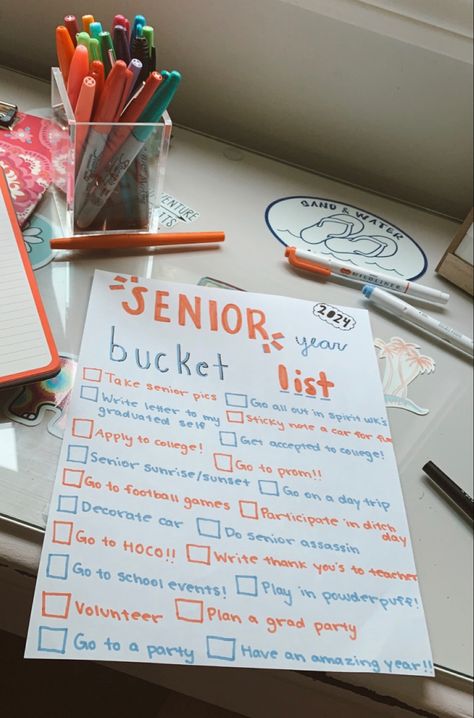 SAND & WATER
ADVENTURE
SENIOR
2024
year
bucket list
Take senior pics
Go all out in spirit wk's
Write letter to my graduated self
Sticky note a car for fun
Apply to college!
Get accepted to college!
Senior sunrise/sunset
Go to prom!!
Go on a day trip
Go to football games
Participate in ditch day
Decorate car
Do senior assassin
Go to HOCO!!
Write thank you's to teacher
Go to school events!
Play in powderpuff!
Volunteer
Plan a grad party
Go to a party
Have an amazing year!!